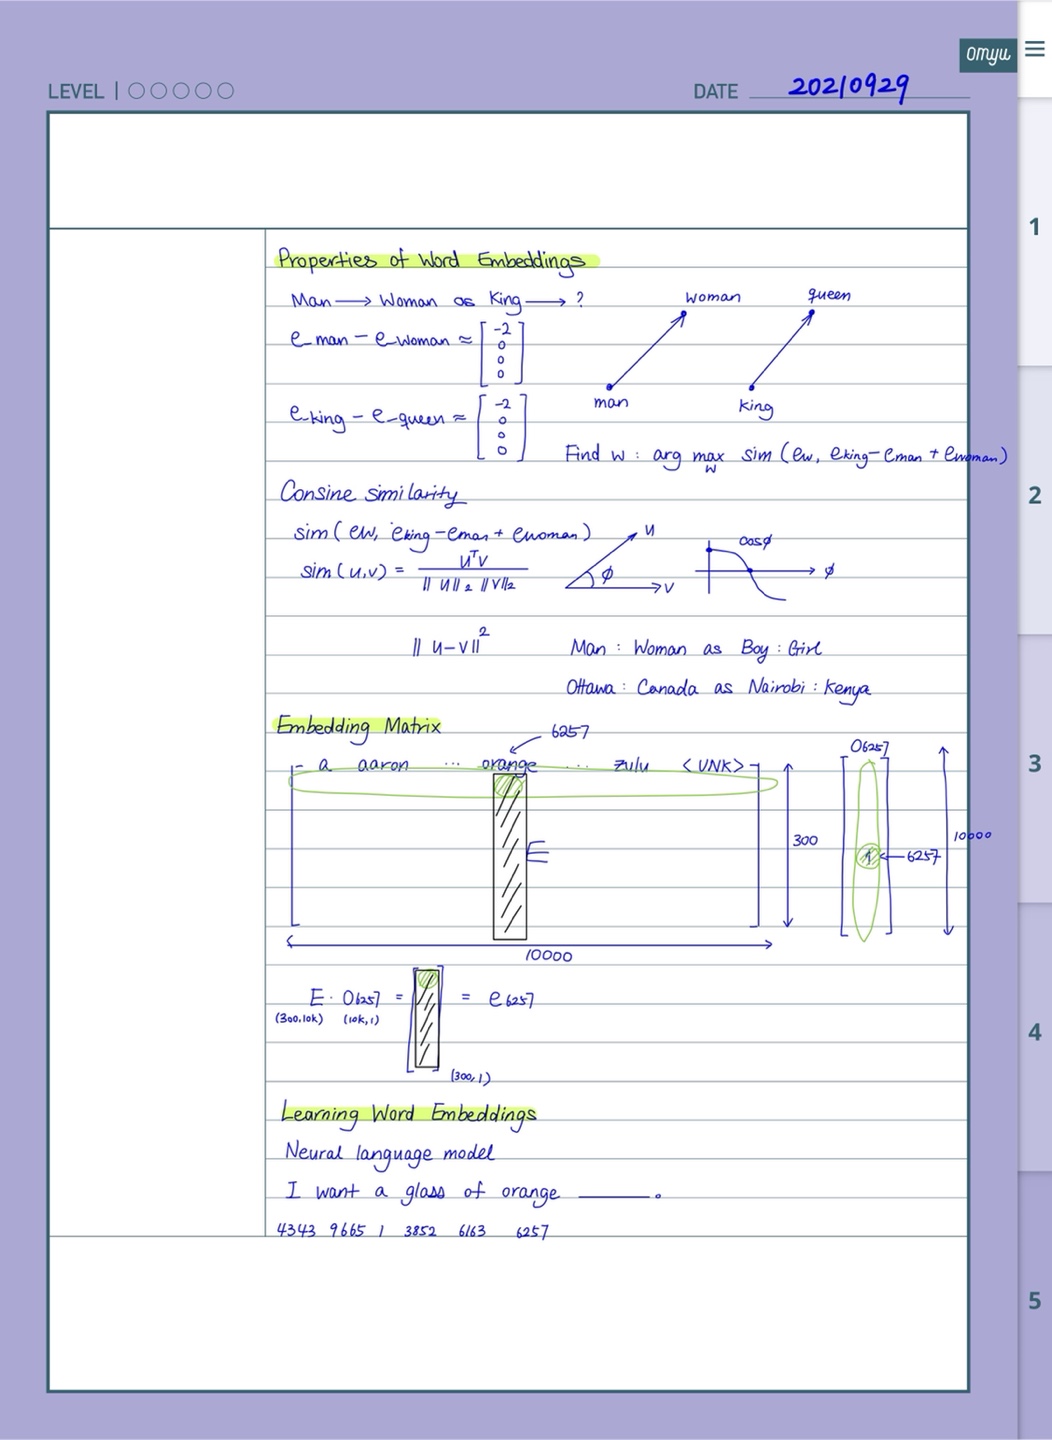 omyu
LEVEL
DATE 20210929
1
2
3
4
5
Properties of Word Embeddings
Man → Woman as King → ?
e_man − e_woman ≈ [-2 0 0 0]
woman
queen
man
king
e_king − e_queen ≈ [-2 0 0 0]
Find w : arg max sim (ew, eking − eman + ewoman)
w
Consine similarity
sim ( ew, eking − eman + ewoman )
sim (u,v) = uᵀv / ||u||₂ ||v||₂
u
ϕ
v
cosϕ
ϕ
|| u−v ||²
Man : Woman as Boy : Girl
Ottawa : Canada as Nairobi : Kenya
Embedding Matrix
6257
a aaron ... orange ... zulu <UNK>
E
300
10000
O6257
1 ← 6257
10000
E · O6257 = = e6257
(300,10k) (10k,1)
(300,1)
Learning Word Embeddings
Neural language model
I want a glass of orange ____.
4343 9665 1 3852 6163 6257